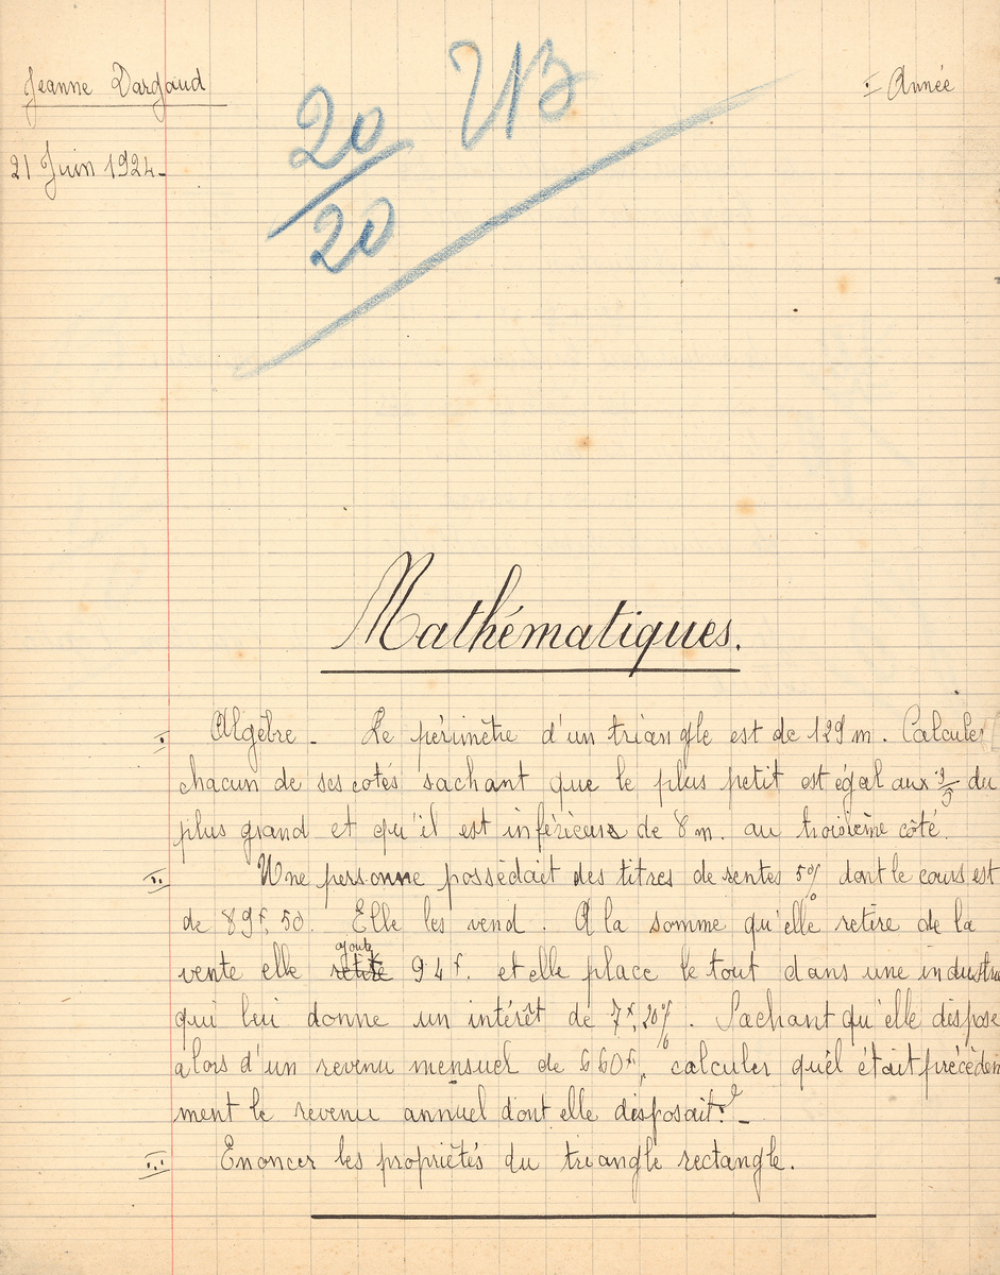 Jeanne Dargaud
I Année
20
20
TB
21 Juin 1924.
Mathématiques.
I Algèbre. Le périmètre d'un triangle est de 129 m. Calculer
chacun de ses cotés sachant que le plus petit est égal aux 3/5 du
plus grand et qu'il est inférieur de 8 m. au troisième côté.
II Une personne possédait des titres de rentes 5% dont le cours est
de 89f,50. Elle les vend. A la somme qu'elle retire de la
ajoute
vente elle retire 94f. et elle place le tout dans une industrie
qui lui donne un intérêt de 7f,20%. Sachant qu'elle dispose
alors d'un revenu mensuel de 660f, calculer quel était précédem
ment le revenu annuel dont elle disposait?
III Enoncer les propriétés du triangle rectangle.